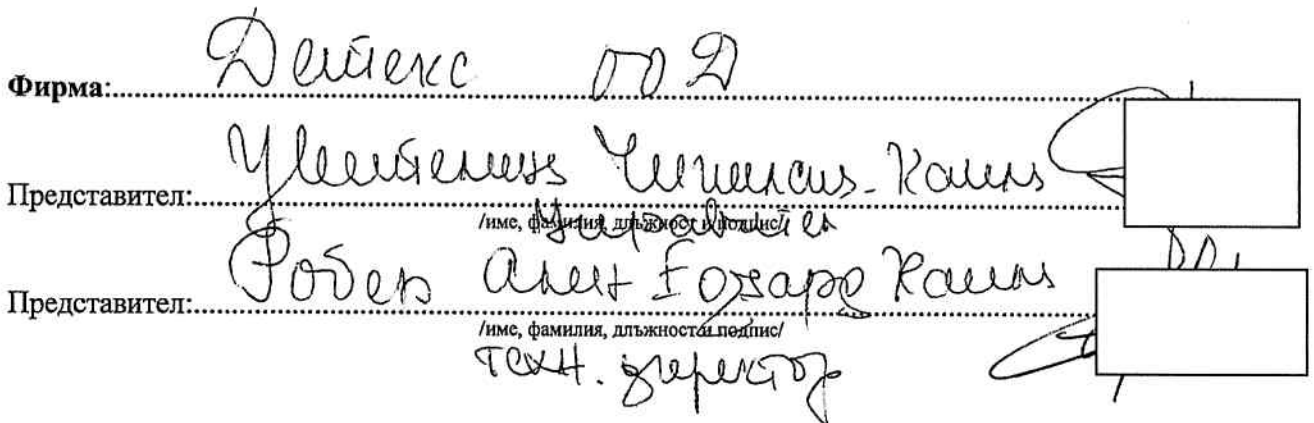 Фирма: Детекс ООД
Представител: Чигилска-Камю
/име, фамилия, длъжност и подпис/
Управител
Представител: Робер Ален Камю
/име, фамилия, длъжност и подпис/
техн. директор